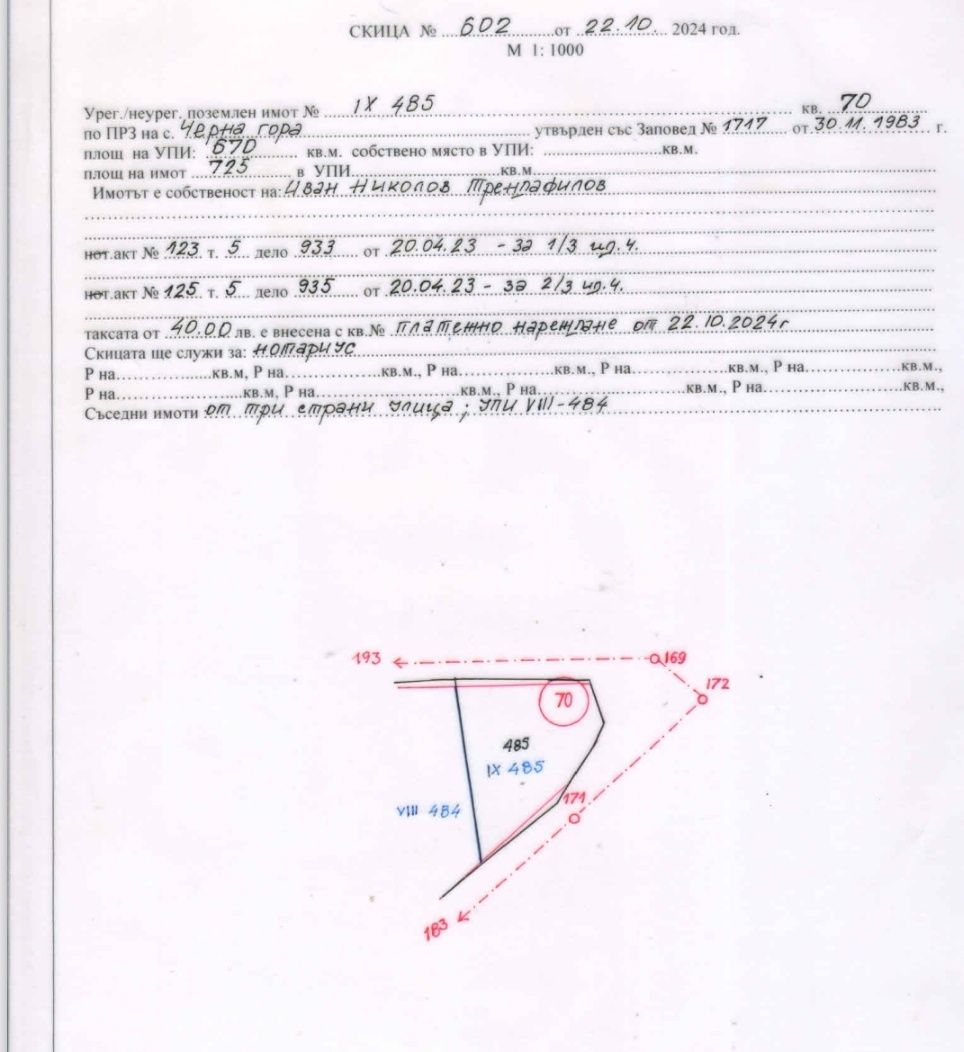 СКИЦА № 602 от 22.10. 2024 год.
М 1: 1000
Урег./неурег. поземлен имот № IX 485 кв. 70
по ПРЗ на с. Черна гора утвърден със Заповед № 1717 от 30.11.1983 г.
площ на УПИ: 670 кв.м. собствено място в УПИ: кв.м.
площ на имот 725 в УПИ кв.м.
Имотът е собственост на: Иван Николов Трендафилов
нот.акт № 123 т. 5 дело 933 от 20.04.23 - за 1/3 ид.ч.
нот.акт № 125 т. 5 дело 935 от 20.04.23 - за 2/3 ид.ч.
таксата от 40.00 лв. е внесена с кв.№ платежно нареждане от 22.10.2024г
Скицата ще служи за: нотариус
Р на кв.м, Р на кв.м., Р на кв.м., Р на кв.м., Р на кв.м.,
Р на кв.м, Р на кв.м., Р на кв.м., Р на кв.м.,
Съседни имоти от три страни улица; УПИ VIII-484
193
169
172
70
485
IX 485
171
VIII 484
183